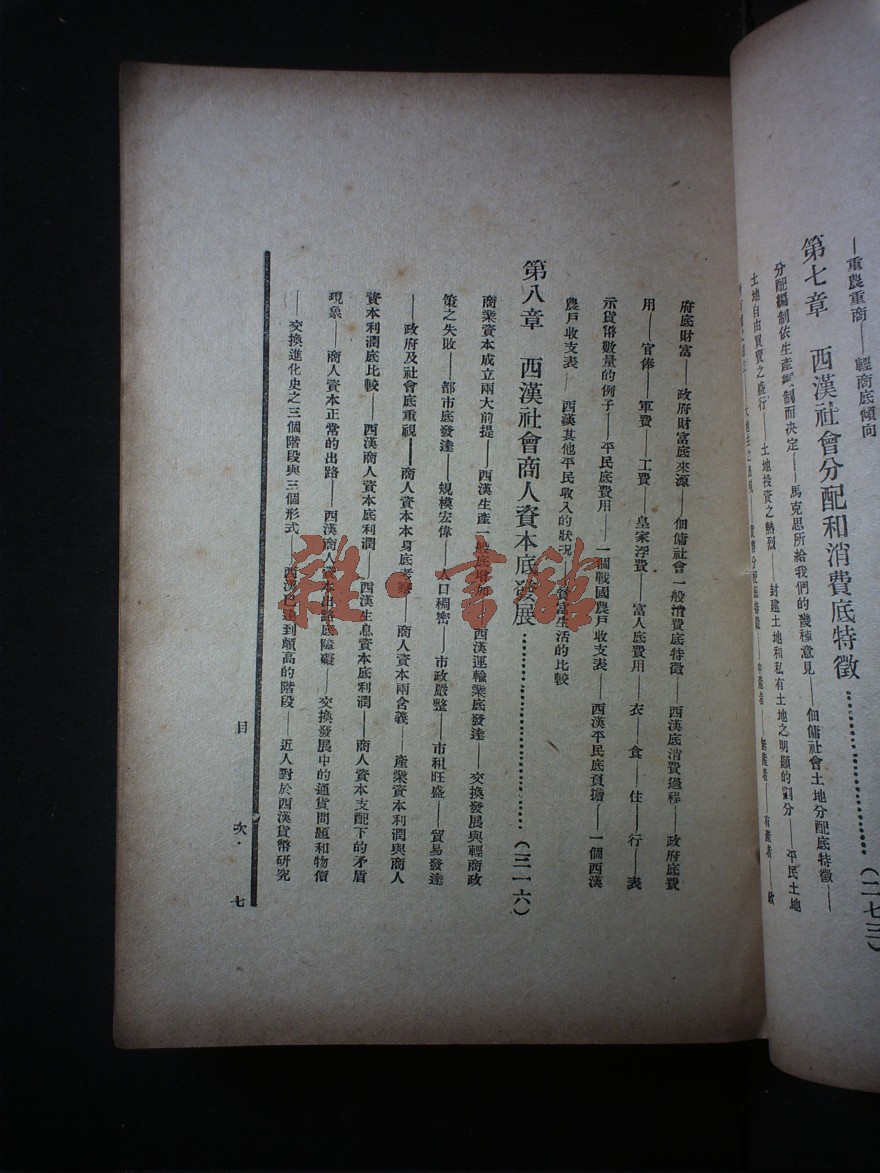 —重農重商——輕商底傾向
第七章 西漢社會分配和消費底特徵…………………(二七三)
分配編制依生產編制而決定——馬克思所給我們的幾種意見——佃傭社會土地分配底特徵——
土地自由買賣之盛行——土地投資之熱烈——封建土地和私有土地之明顯的劃分——平民土地
府底財富——政府財富底來源——佃傭社會一般消費底特徵——西漢底消費過程——政府底費
用——官俸——軍費——工費——皇家浮費——富人底費用——衣——食——住——行——表
示貨幣數量的例子——平民底費用——一個戰國農戶收支表——西漢平民底負擔——一個西漢
農戶收支表——西漢其他平民收入的狀況——貧富生活的比較
第八章 西漢社會商人資本底發展…………………(三一六)
商業資本成立兩大前提——西漢生產一般底增加——西漢運輸業底發達——交換發展與輕商政
策之失敗——都市底發達——規模宏偉——人口稠密——市政嚴整——市租旺盛——貿易發達
——政府及社會底重視——商人資本本身底考察——商人資本兩含義——產業資本利潤與商人
資本利潤底比較——西漢商人資本底利潤——西漢生息資本底利潤——商人資本支配下的矛盾
現象——商人資本正常的出路——西漢商人資本出路底障礙——交換發展中的通貨問題和物價
——交換進化史之三個階段與三個形式——西漢已達到頗高的階段——近人對於西漢貨幣研究
目 次 · 七
雜·書館